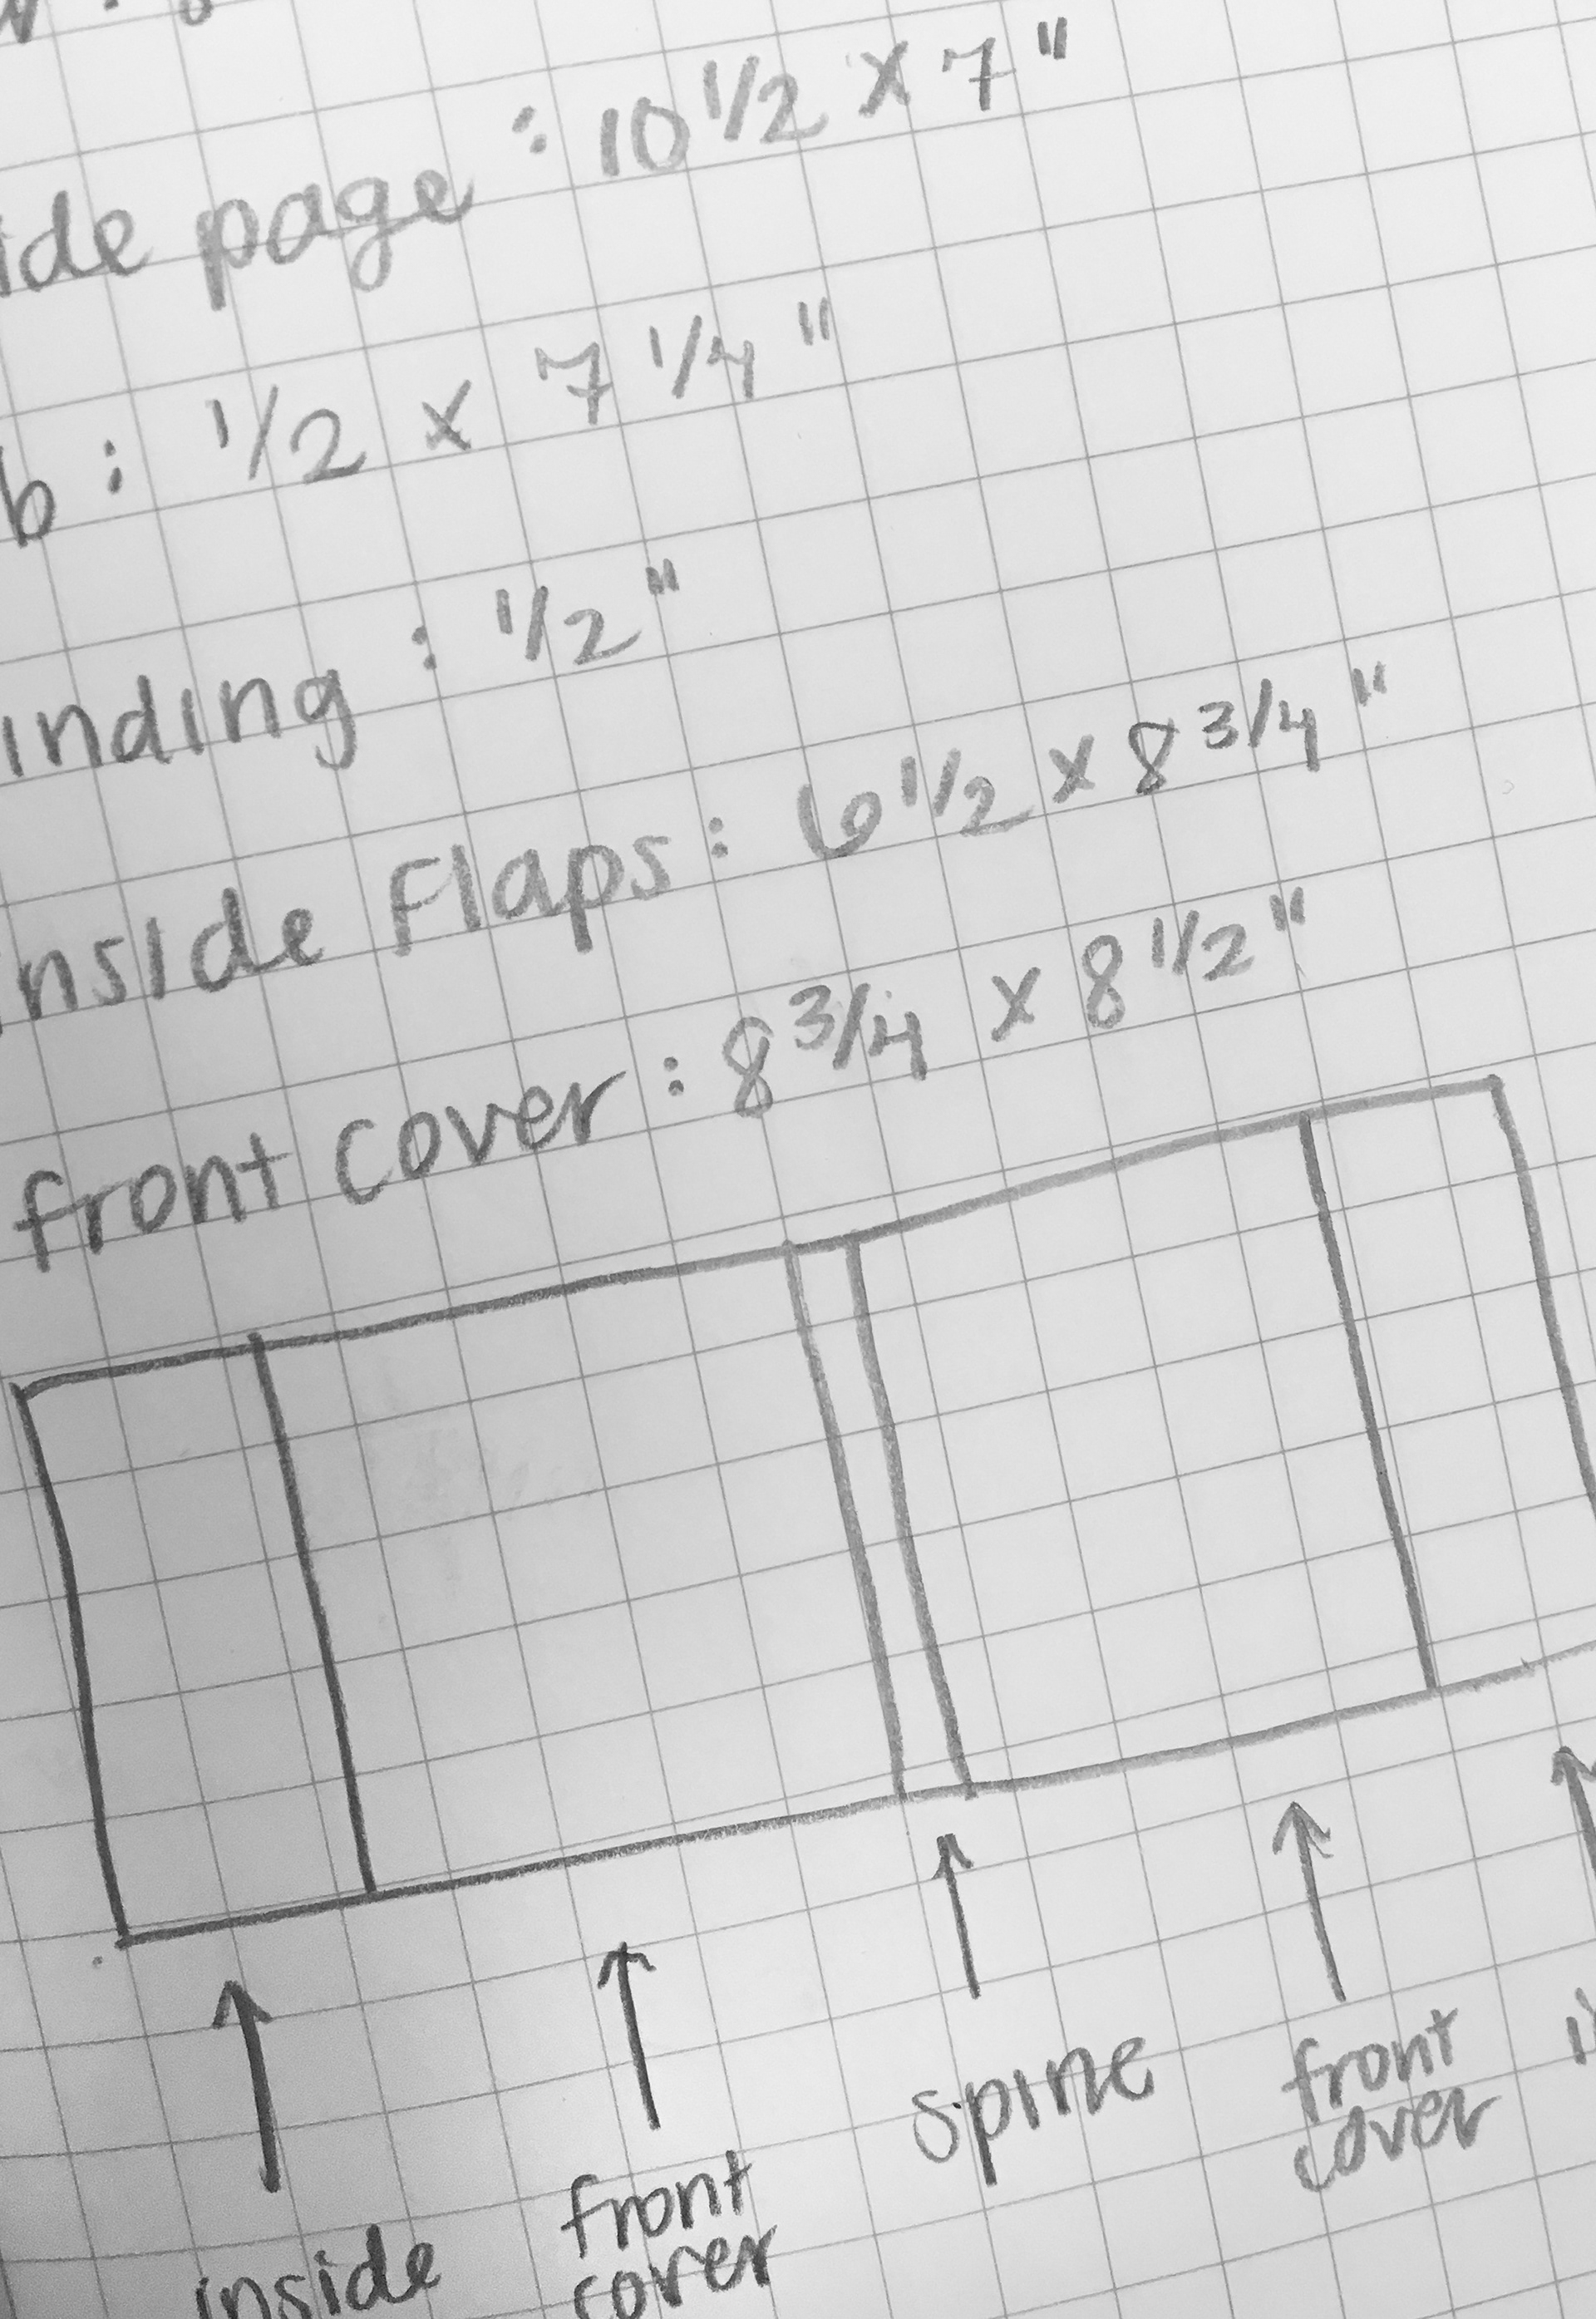 ide page : 10 1/2 x 7"
b : 1/2 x 7 1/4"
inding : 1/2"
nside Flaps : 6 1/2 x 8 3/4"
front cover : 8 3/4 x 8 1/2"
inside
front
cover
spine
front
cover